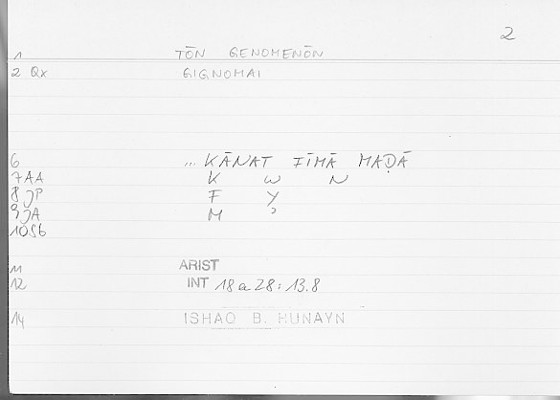 2
1 TŌN GENOMENŌN
2 Qx GIGNOMAI
6 ... KĀNAT FĪMĀ MAḌĀ
7 AA K W N
8 JP F Y
9 JA M ʾ
10 SG
11 ARIST
12 INT 18 a 28 : 13.8
14 ISHAQ B. HUNAYN